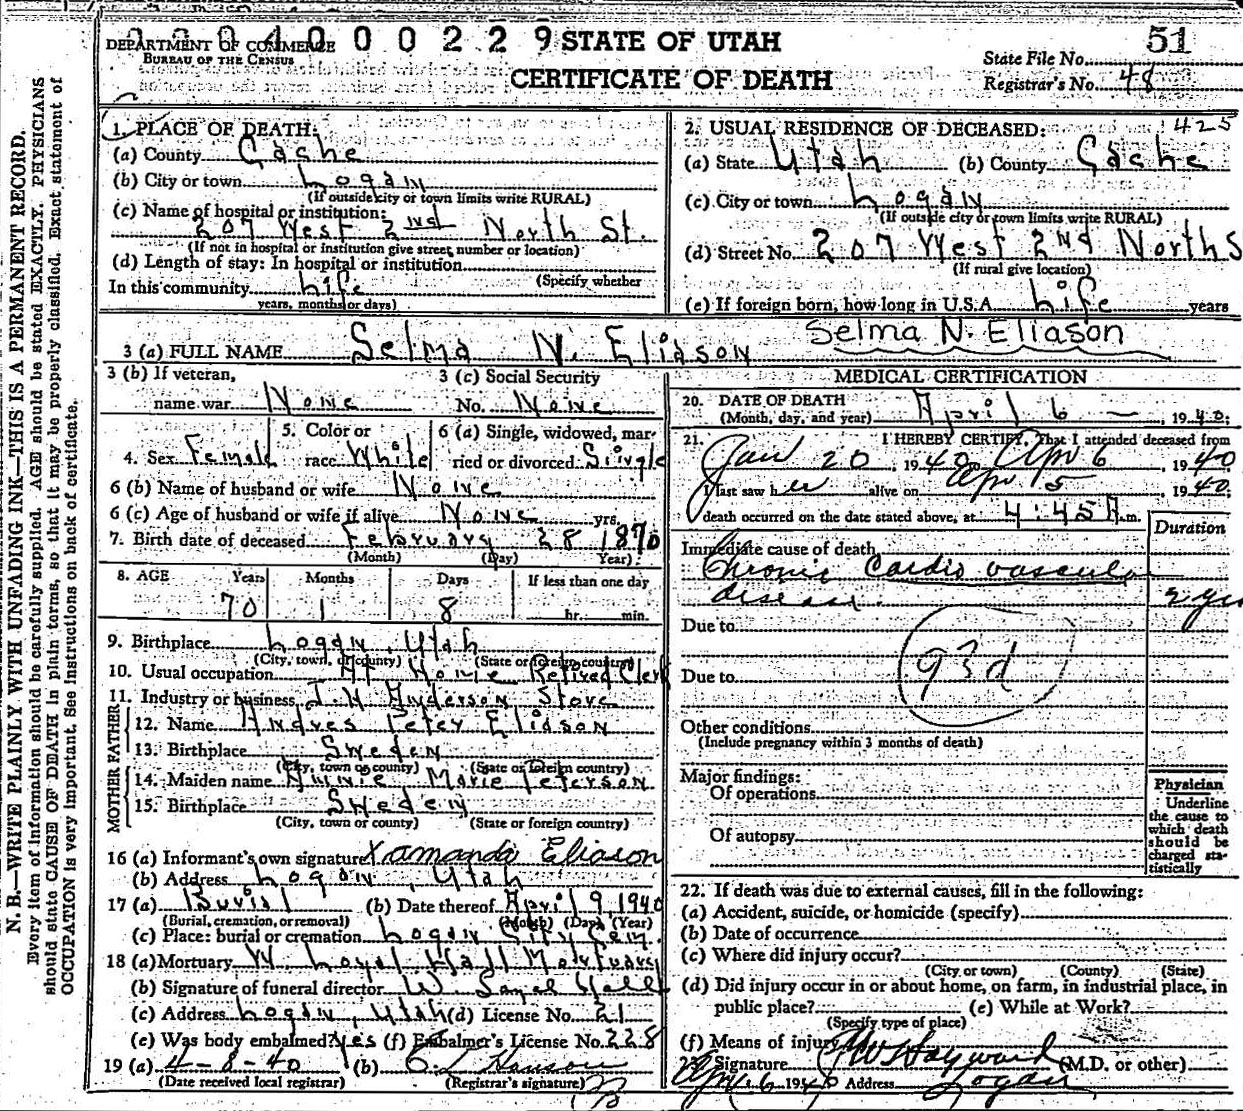 0 0 0 4 0 0 0 2 2 9 STATE OF UTAH 51
DEPARTMENT OF COMMERCE
BUREAU OF THE CENSUS
CERTIFICATE OF DEATH
State File No.
Registrar's No. 48
N. B.—WRITE PLAINLY WITH UNFADING INK—THIS IS A PERMANENT RECORD.
Every item of information should be carefully supplied. AGE should be stated EXACTLY. PHYSICIANS
should state CAUSE OF DEATH in plain terms, so that it may be properly classified. Exact statement of
OCCUPATION is very important. See instructions on back of certificate.
1. PLACE OF DEATH:
(a) County Cache
(b) City or town Logan
(If outside city or town limits write RURAL)
(c) Name of hospital or institution:
207 West 2nd North St.
(If not in hospital or institution give street number or location)
(d) Length of stay: In hospital or institution
(Specify whether
In this community Life
years, months or days)
2. USUAL RESIDENCE OF DECEASED: 425
(a) State Utah (b) County Cache
(c) City or town Logan
(If outside city or town limits write RURAL)
(d) Street No. 207 West 2nd North S
(If rural give location)
(e) If foreign born, how long in U.S.A. Life years
3 (a) FULL NAME Selma N. Eliason Selma N. Eliason
3 (b) If veteran,
name war None
3 (c) Social Security
No. None
4. Sex Female
5. Color or
race White
6 (a) Single, widowed, mar-
ried or divorced Single
6 (b) Name of husband or wife None
6 (c) Age of husband or wife if alive None yrs.
7. Birth date of deceased February 28 1870
(Month) (Day) Year)
8. AGE Years Months Days If less than one day
70 1 8 hr. min.
9. Birthplace Logan, Utah
(City, town, or county) (State or foreign country)
10. Usual occupation At Home Retired Clerk
11. Industry or business J. H. Anderson Store
FATHER
12. Name Andres Peter Eliason
13. Birthplace Sweden
(City, town or county) (State or foreign country)
MOTHER
14. Maiden name Annie Marie Peterson
15. Birthplace Sweden
(City, town or county) (State or foreign country)
16 (a) Informant's own signature x Amanda Eliason
(b) Address Logan, Utah
17 (a) Burial (b) Date thereof April 9, 1940
(Burial, cremation, or removal) (Month) (Day) (Year)
(c) Place: burial or cremation Logan City Cem.
18 (a) Mortuary W. Loyal Hall Mortuary
(b) Signature of funeral director W. Loyal Hall
(c) Address Logan, Utah (d) License No. 21
(e) Was body embalmed? Yes (f) Embalmer's License No. 228
19 (a) 4-8-40 (b) O. L. Hanson
(Date received local registrar) (Registrar's signature)
MEDICAL CERTIFICATION
20. DATE OF DEATH
(Month, day, and year) April 6 — 1940.
21. I HEREBY CERTIFY, That I attended deceased from
Jan 20, 1940, Apr 6, 1940
I last saw her alive on Apr 5, 1940.
death occurred on the date stated above, at 4:45 A.m.
Duration
Immediate cause of death
Chronic Cardio vascular
disease. 2 yrs
Due to
93d
Due to
Other conditions
(Include pregnancy within 3 months of death)
Major findings:
Of operations
Of autopsy
Physician
Underline
the cause to
which death
should be
charged sta-
tistically
22. If death was due to external causes, fill in the following:
(a) Accident, suicide, or homicide (specify)
(b) Date of occurrence
(c) Where did injury occur?
(City or town) (County) (State)
(d) Did injury occur in or about home, on farm, in industrial place, in
public place? (e) While at Work?
(Specify type of place)
(f) Means of injury
23. Signature Hayward (M.D. or other)
Apr. 6 1940 Address Logan